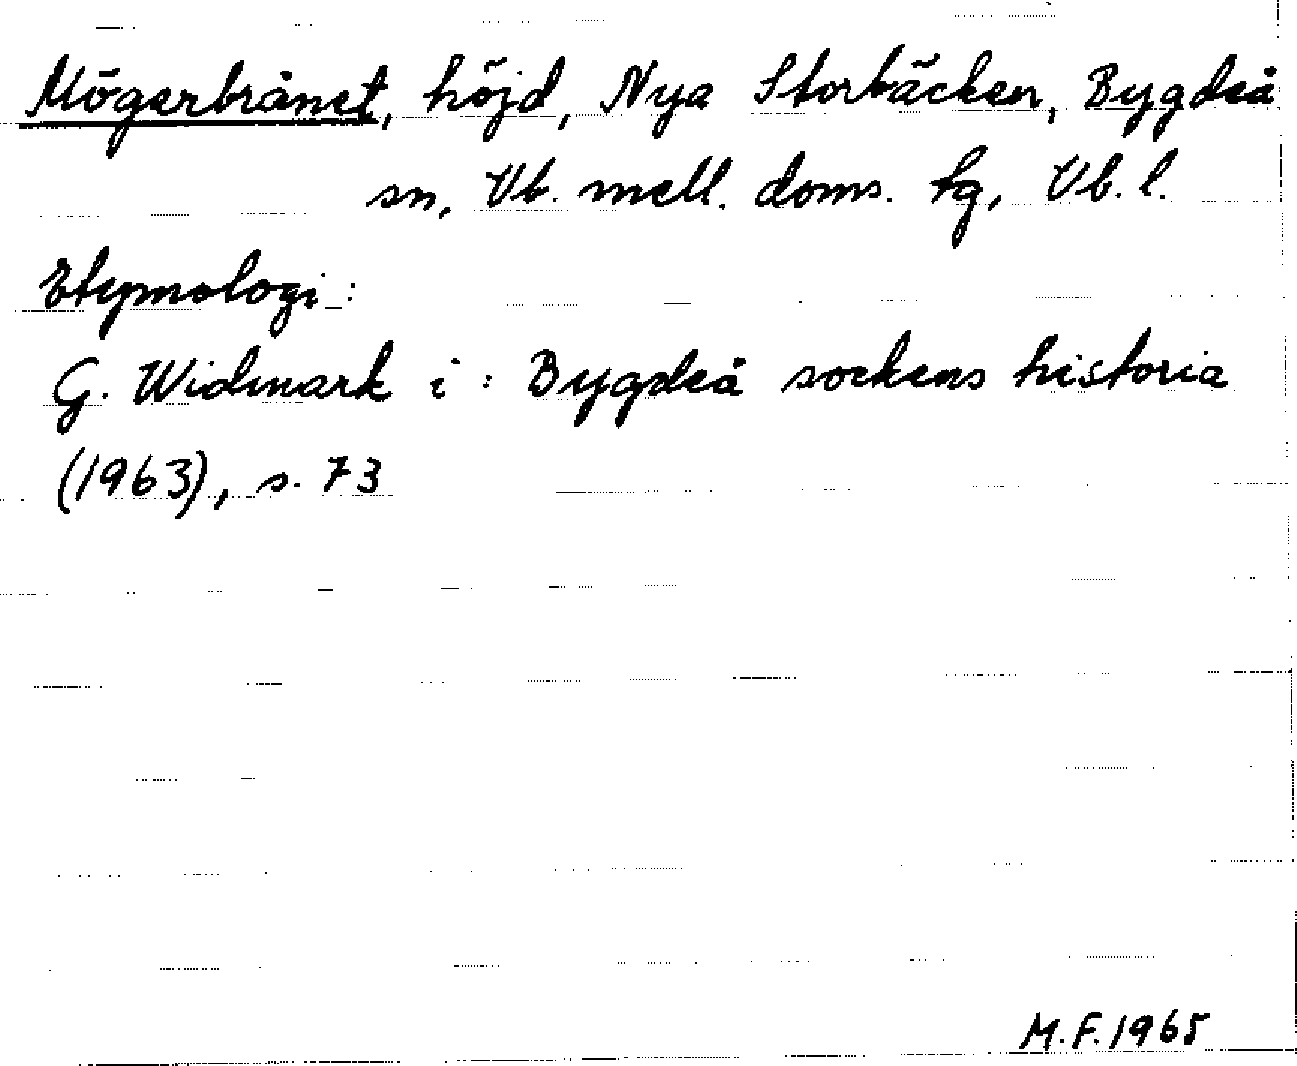 Mögerbrånet, höjd, Nya Storbäcken, Bygdeå
sn, Vb. mell. doms. tg, Vb. l.
Etymologi:
G. Widmark i: Bygdeå sockens historia
(1963), s. 73
M.F. 1965